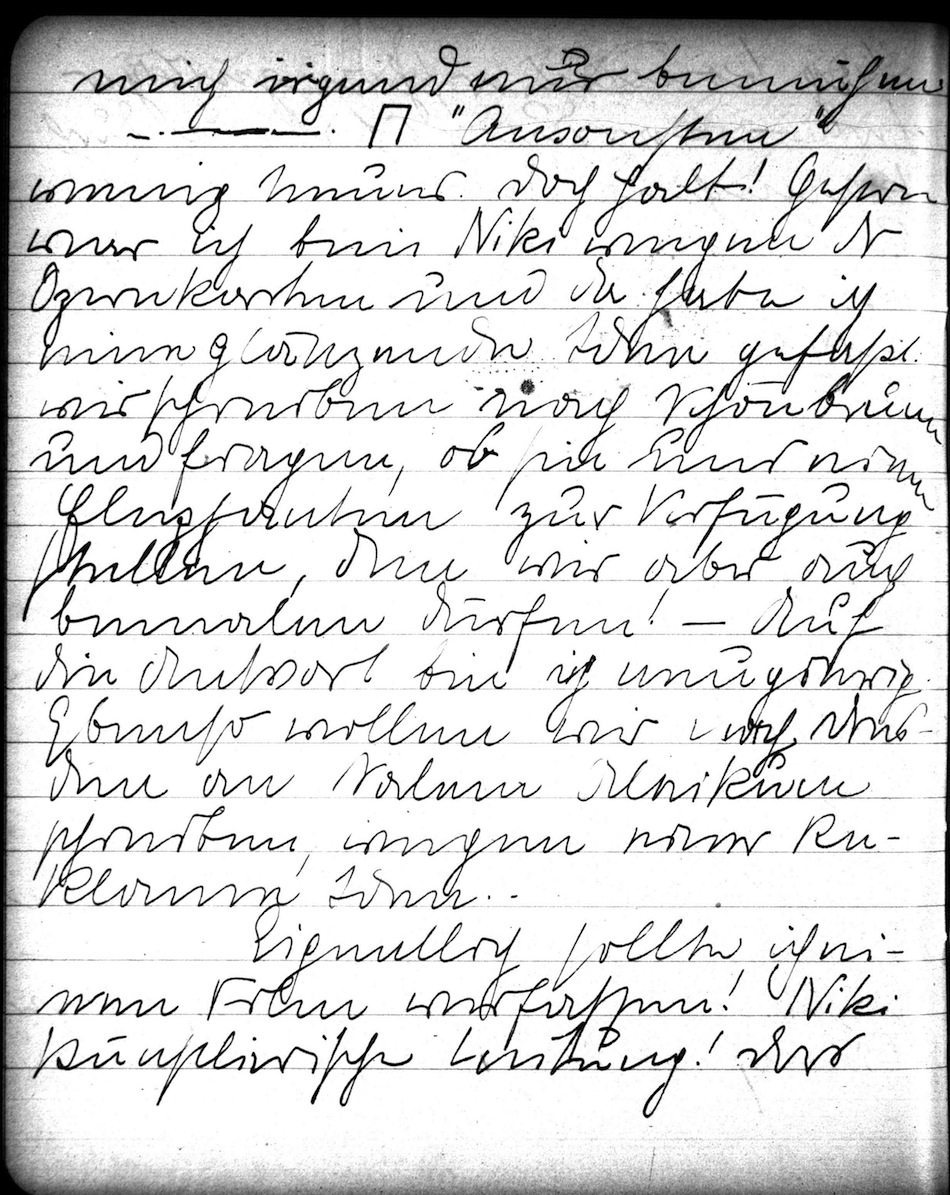 mich irgendwie bemühen
"Ansonsten"
wenig neues. Doch halt! Gestern
war ich beim Niki wegen
und da habe ich
eine glänzende Idee gefaßt.
wir schreiben nach Schönbrunn
und fragen, ob sie uns einen
Elefanten zur Verfügung
stellen, den wir aber auch
bemalen dürfen! — Auf
die Antwort bin ich neugierig.
Ebenso wollen wir nach Dres-
den an
schreiben, wegen einer Re-
klame Idee..
Eigentlich sollte ich ei-
nen Film verfassen! Niki
künstlerische Leitung! Das